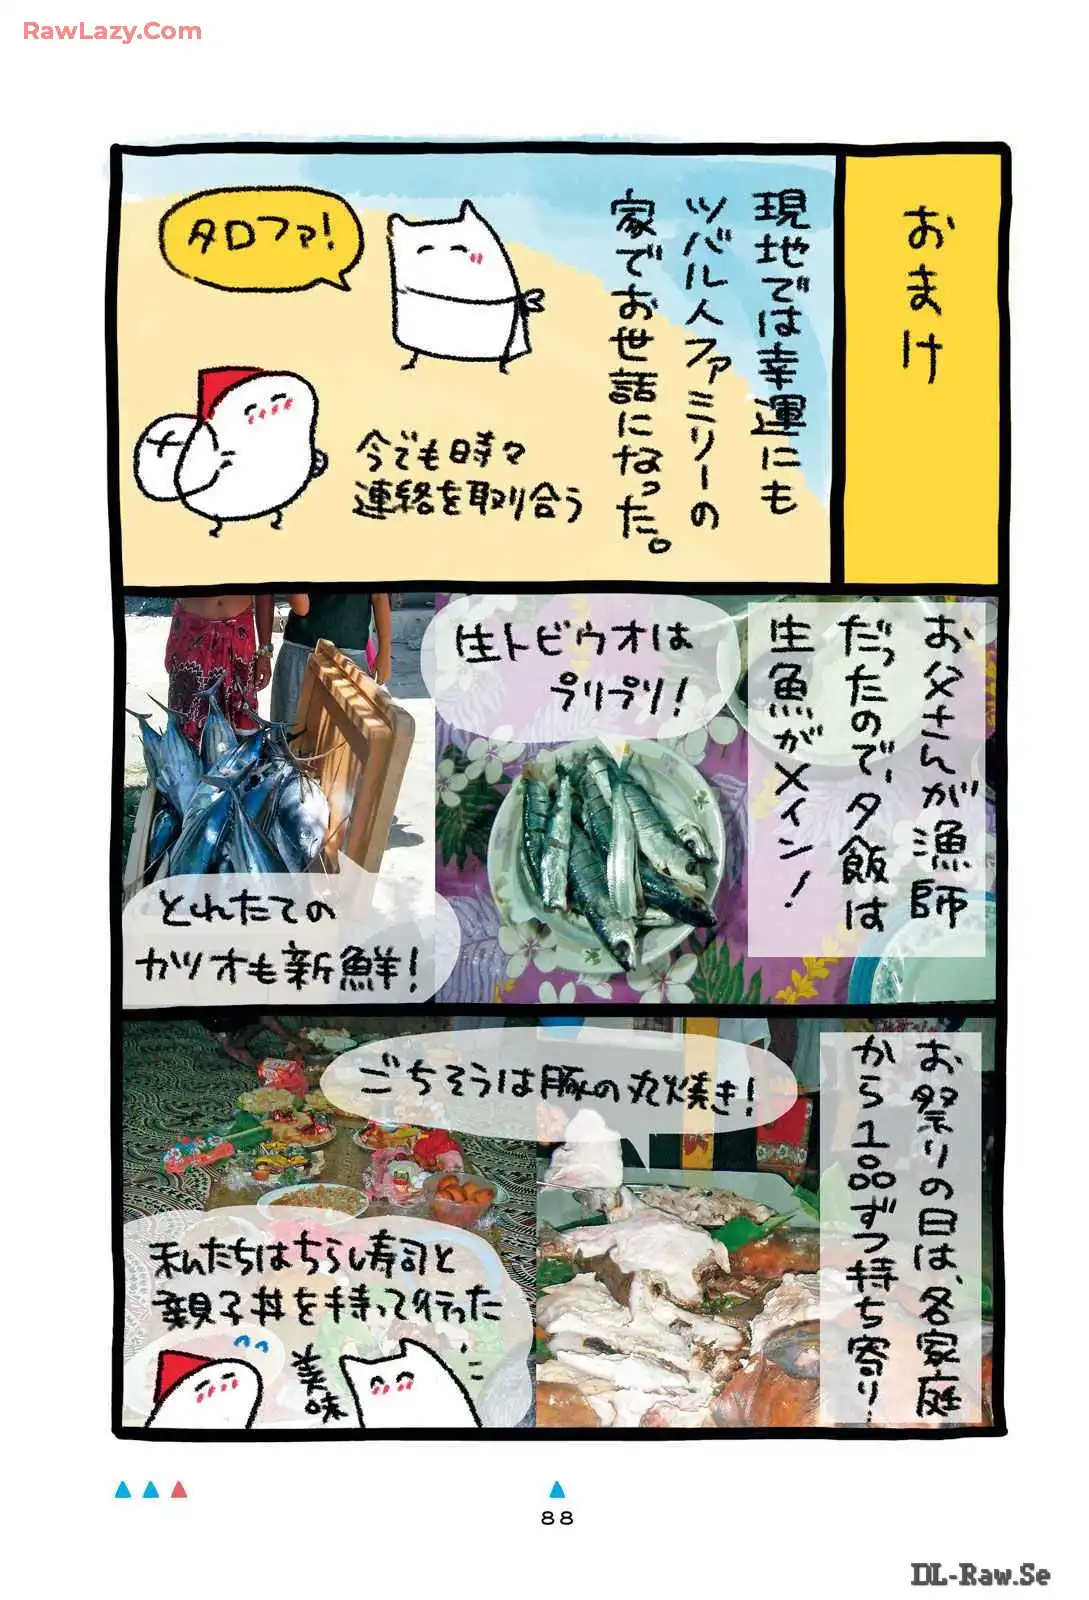 RawLazy.Com
おまけ
現地では幸運にも
ツバル人ファミリーの
家でお世話になった。
タロファ!
今でも時々
連絡を取り合う
お父さんが漁師
だったので、夕飯は
生魚がメイン!
生トビウオは
プリプリ!
とれたての
カツオも新鮮!
お祭りの日は、各家庭
から1品ずつ持ち寄り.
ごちそうは豚の丸焼き!
私たちはちらし寿司と
親子丼を持って行った
美味
88
DL-Raw.Se